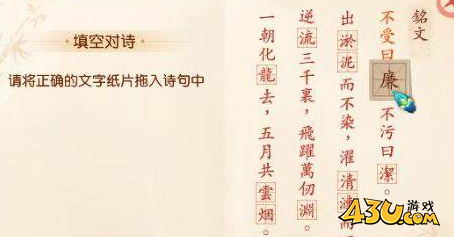 填空对诗
请将正确的文字纸片拖入诗句中
銘文
不受曰廉，不污曰潔。
出淤泥而不染，濯清漣而
逆流三千裏，飛躍萬仞淵。
一朝化龍去，五月共雲烟。
43U游戏
.com